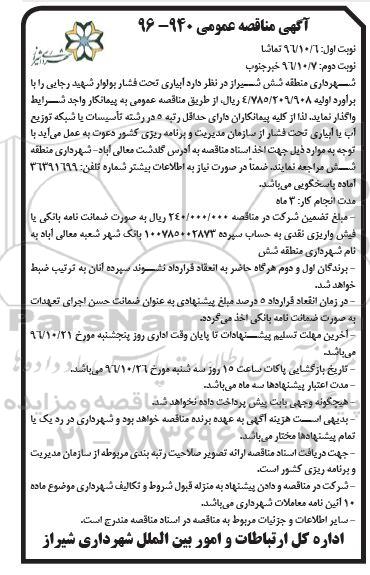 آگهی مناقصه عمومی ۹۴۰- ۹۶
نوبت اول: ۹۶/۱۰/۶ تماشا
نوبت دوم: ۹۶/۱۰/۷ خبرجنوب
شــهرداری منطقه شش شــیراز در نظر دارد آبیاری تحت فشار بولوار شهید رجایی را با
برآورد اولیه ۴/۷۸۵/۲۰۹/۹۰۸ ریال، از طریق مناقصه عمومی به پیمانکار واجد شــرایط
واگذار نماید. لذا از کلیه پیمانکاران دارای حداقل رتبه ۵ در رشته تأسیسات یا شبکه توزیع
آب یا آبیاری تحت فشار از سازمان مدیریت و برنامه ریزی کشور دعوت به عمل می‌آید با
توجه به موارد ذیل جهت اخذ اسناد مناقصه به آدرس گلدشت معالی آباد- شهرداری منطقه
شــش مراجعه نمایند. ضمناً در صورت نیاز به اطلاعات بیشتر شماره تلفن: ۳۶۳۹۱۶۹۹
آماده پاسخگویی می‌باشد.
مدت انجام کار: ۳ ماه
- مبلغ تضمین شرکت در مناقصه ۲۴۰/۰۰۰/۰۰۰ ریال به صورت ضمانت نامه بانکی یا
فیش واریزی نقدی به حساب سپرده ۱۰۰۷۸۵۰۰۲۸۷۳ بانک شهر شعبه معالی آباد به
نام شهرداری منطقه شش
- برندگان اول و دوم هرگاه حاضر به انعقاد قرارداد نشــوند سپرده آنان به ترتیب ضبط
خواهد شد.
- در زمان انعقاد قرارداد ۵ درصد مبلغ پیشنهادی به عنوان ضمانت حسن اجرای تعهدات
به صورت ضمانت نامه بانکی اخذ می‌گردد.
- آخرین مهلت تسلیم پیشــنهادات تا پایان وقت اداری روز پنجشنبه مورخ ۹۶/۱۰/۲۱
می‌باشد.
- تاریخ بازگشایی پاکات ساعت ۱۵ روز سه شنبه مورخ ۹۶/۱۰/۲۶ می‌باشد.
- مدت اعتبار پیشنهادها سه ماه می‌باشد.
- هیچگونه وجهی بابت پیش پرداخت داده نخواهد شد.
- بدیهی اســت هزینه آگهی به عهده برنده مناقصه خواهد بود و شهرداری در رد یک یا
تمام پیشنهادها مختار می‌باشد.
- جهت دریافت اسناد مناقصه ارائه تصویر صلاحیت رتبه بندی مربوطه از سازمان مدیریت
و برنامه ریزی کشور است.
- شرکت در مناقصه و دادن پیشنهاد به منزله قبول شروط و تکالیف شهرداری موضوع ماده
۱۰ آئین نامه معاملات شهرداری می‌باشد.
- سایر اطلاعات و جزئیات مربوط به مناقصه در اسناد مناقصه مندرج است.
اداره کل ارتباطات و امور بین الملل شهرداری شیراز